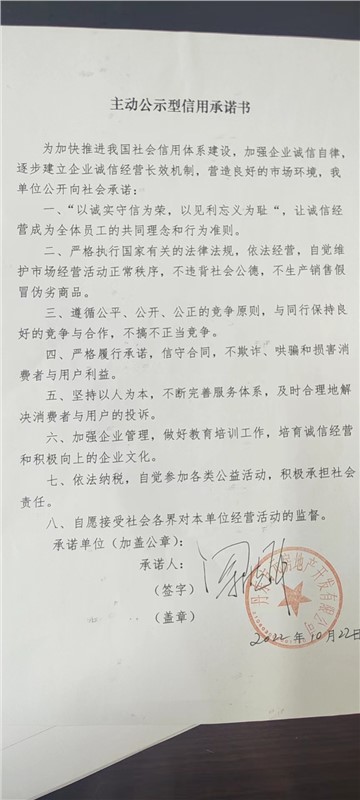 主动公示型信用承诺书
为加快推进我国社会信用体系建设，加强企业诚信自律，
逐步建立企业诚信经营长效机制，营造良好的市场环境，我
单位公开向社会承诺：
一、“以诚实守信为荣，以见利忘义为耻“，让诚信经
营成为全体员工的共同理念和行为准则。
二、严格执行国家有关的法律法规，依法经营，自觉维
护市场经营活动正常秩序，不违背社会公德，不生产销售假
冒伪劣商品。
三、遵循公平、公开、公正的竞争原则，与同行保持良
好的竞争与合作，不搞不正当竞争。
四、严格履行承诺，信守合同，不欺诈、哄骗和损害消
费者与用户利益。
五、坚持以人为本，不断完善服务体系，及时合理地解
决消费者与用户的投诉。
六、加强企业管理，做好教育培训工作，培育诚信经营
和积极向上的企业文化。
七、依法纳税，自觉参加各类公益活动，积极承担社会
责任。
八、自愿接受社会各界对本单位经营活动的监督。
承诺单位（加盖公章）：
承诺人：
（签字）
（盖章）
房地产开发有限公司
2022年10月22日